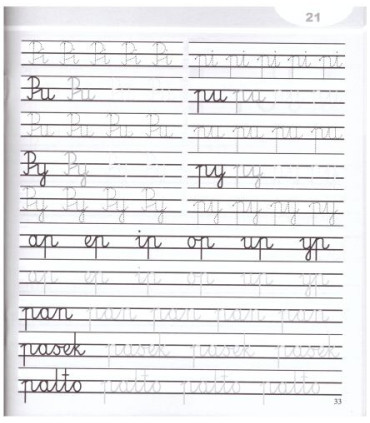 21
Pi Pi Pi Pi Pi pi pi pi pi pi
Pu Pu pu pu
Pu Pu Pu Pu pu pu pu pu
Py Py py py
Py Py Py Py py py py py
ap ep ip op up yp
ap ep ip op up yp
pan pan pan pan pan
pasek pasek pasek pasek
palto palto palto palto
33